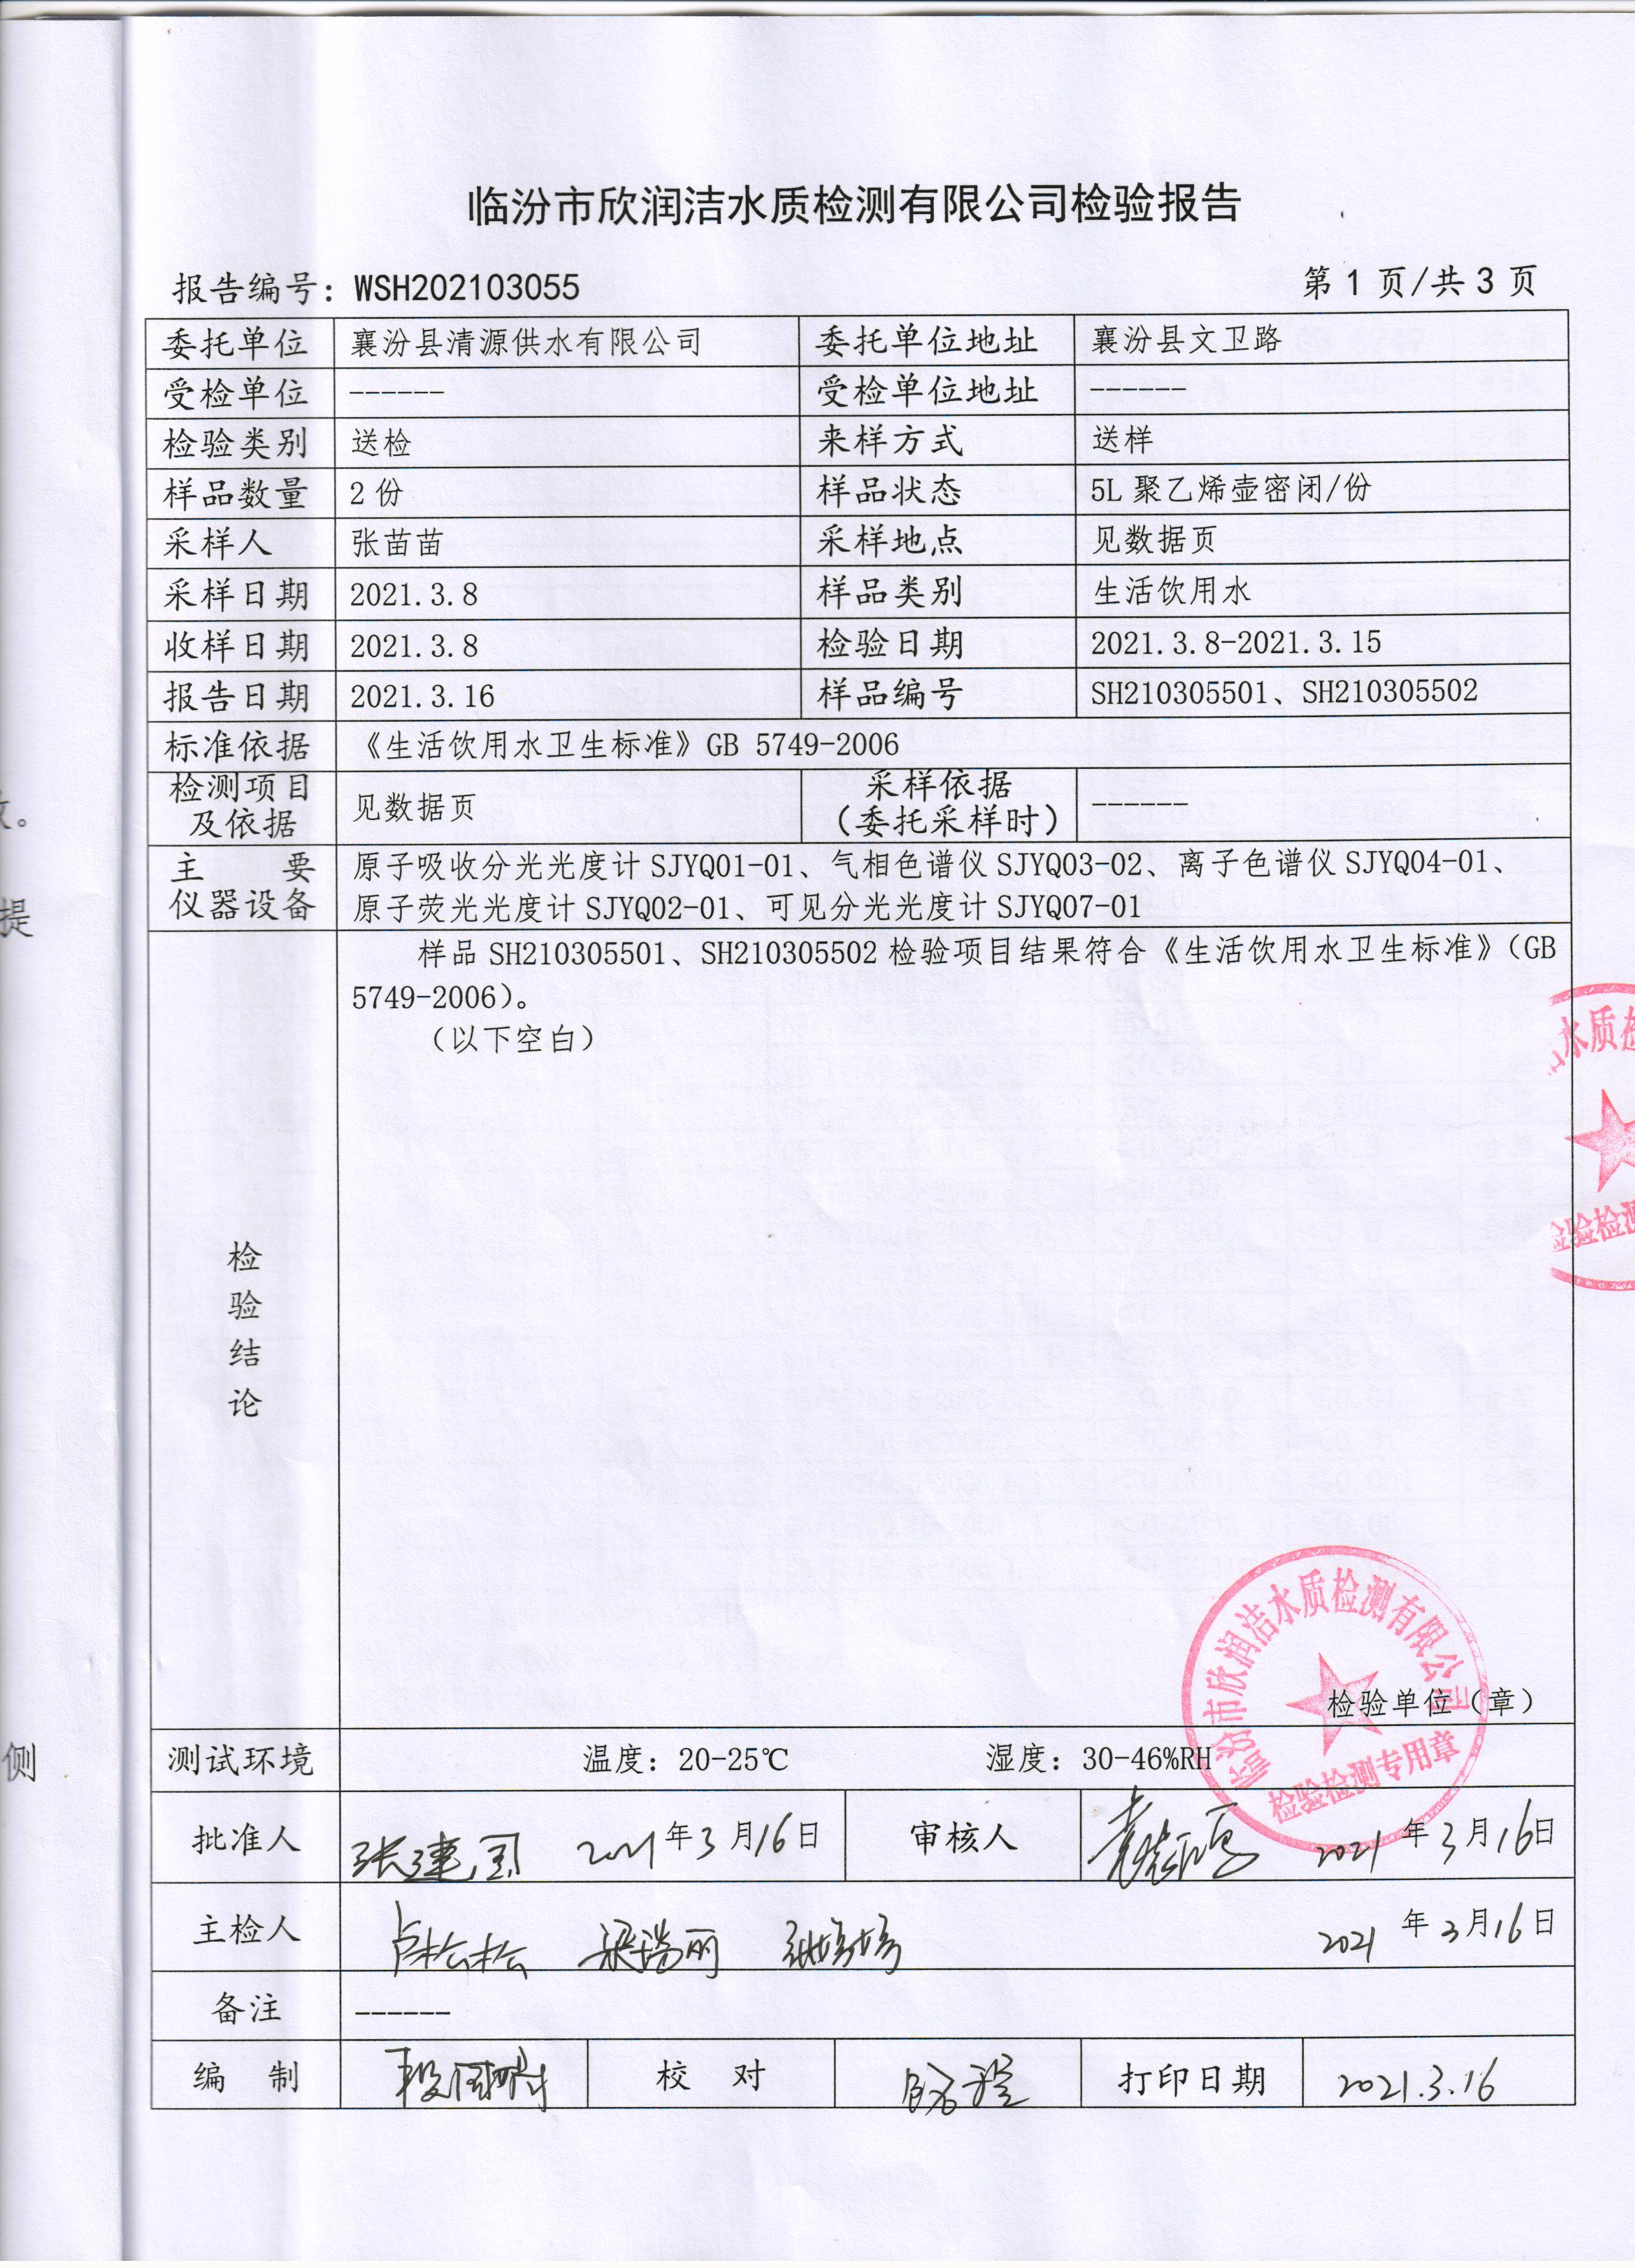 临汾市欣润洁水质检测有限公司检验报告
报告编号：WSH202103055 第1页/共3页
委托单位 襄汾县清源供水有限公司 委托单位地址 襄汾县文卫路
受检单位 ------ 受检单位地址 ------
检验类别 送检 来样方式 送样
样品数量 2份 样品状态 5L聚乙烯壶密闭/份
采样人 张苗苗 采样地点 见数据页
采样日期 2021.3.8 样品类别 生活饮用水
收样日期 2021.3.8 检验日期 2021.3.8-2021.3.15
报告日期 2021.3.16 样品编号 SH210305501、SH210305502
标准依据 《生活饮用水卫生标准》GB 5749-2006
检测项目及依据 见数据页 采样依据（委托采样时） ------
主要仪器设备 原子吸收分光光度计SJYQ01-01、气相色谱仪SJYQ03-02、离子色谱仪SJYQ04-01、
原子荧光光度计SJYQ02-01、可见分光光度计SJYQ07-01
检验结论
样品SH210305501、SH210305502检验项目结果符合《生活饮用水卫生标准》（GB
5749-2006）。
（以下空白）
水质检
检验检测
临汾市欣润洁水质检测有限公司
检验检测专用章
检验单位（章）
测试环境 温度：20-25℃ 湿度：30-46%RH
批准人 张建国 2021年3月16日 审核人 2021年3月16日
主检人 卢松松 梁瑞丽 张婷婷 2021年3月16日
备注 ------
编 制 校 对 打印日期 2021.3.16
提
侧